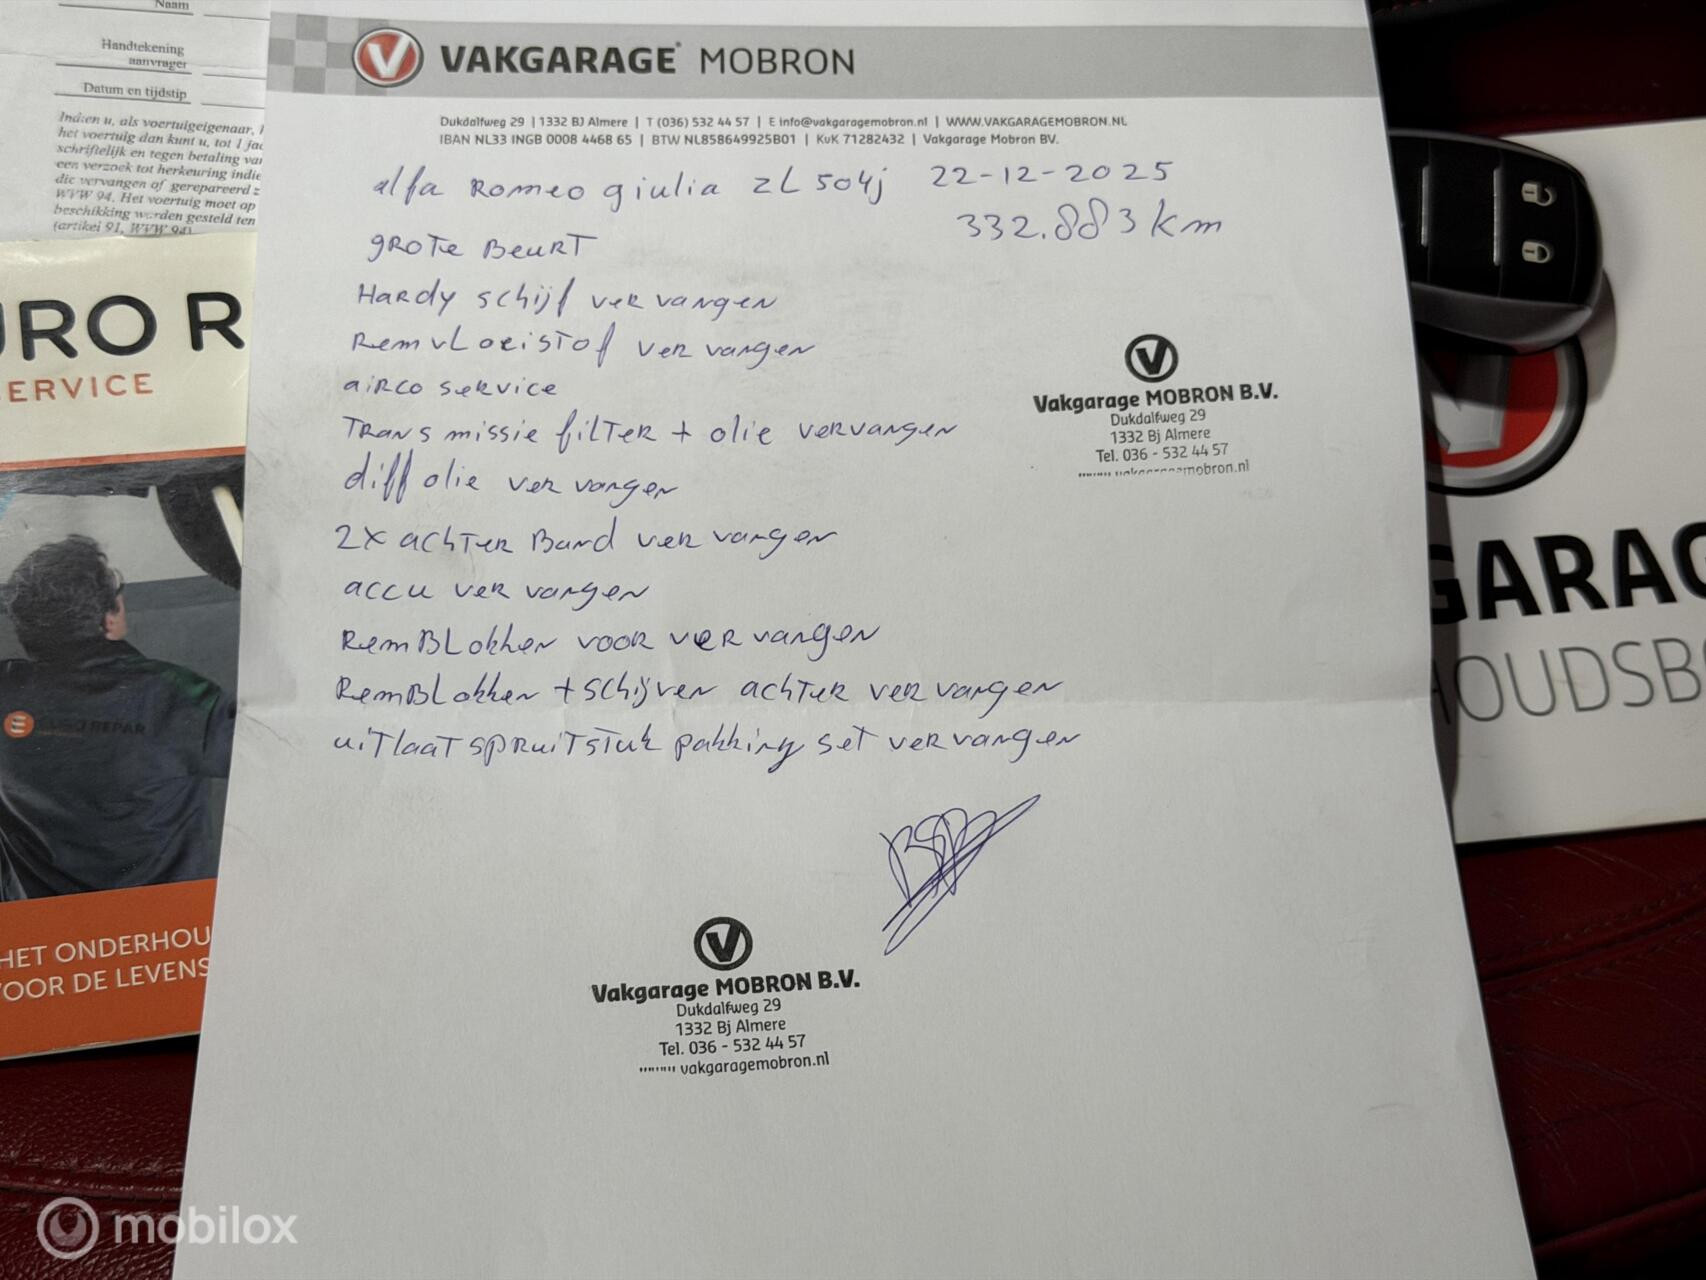 Naam
Handtekening
aanvrager
Datum en tijdstip
Indien u, als voertuigeigenaar,
het voertuig dan kunt u, tot 1
schriftelijk en tegen betaling
een verzoek tot herkeuring
die vervangen of gerepareerd
WVW 94. Het voertuig moet op
beschikking worden gesteld ten
(artikel 91, WVW 94)
URO R
ERVICE
EURO REPAR
HET ONDERHOU
VOOR DE LEVENS
VAKGARAGE MOBRON
Dukdalfweg 29 | 1332 BJ Almere | T (036) 532 44 57 | E info@vakgaragemobron.nl | WWW.VAKGARAGEMOBRON.NL
IBAN NL33 INGB 0008 4468 65 | BTW NL858649925B01 | KvK 71282432 | Vakgarage Mobron BV.
alfa Romeo giulia ZL504j 22-12-2025
332.883 km
grote Beurt
Hardy schijf vervangen
Remvloeistof vervangen
airco service
Transmissie filter + olie vervangen
diff olie vervangen
2x achter Band vervangen
accu vervangen
RemBlokken voor vervangen
RemBlokken + schijven achter vervangen
uitlaatspruitstuk pakking set vervangen
Vakgarage MOBRON B.V.
Dukdalfweg 29
1332 Bj Almere
Tel. 036 - 532 44 57
vakgaragemobron.nl
Vakgarage MOBRON B.V.
Dukdalfweg 29
1332 Bj Almere
Tel. 036 - 532 44 57
vakgaragemobron.nl
GARAG
HOUDSB
mobilox